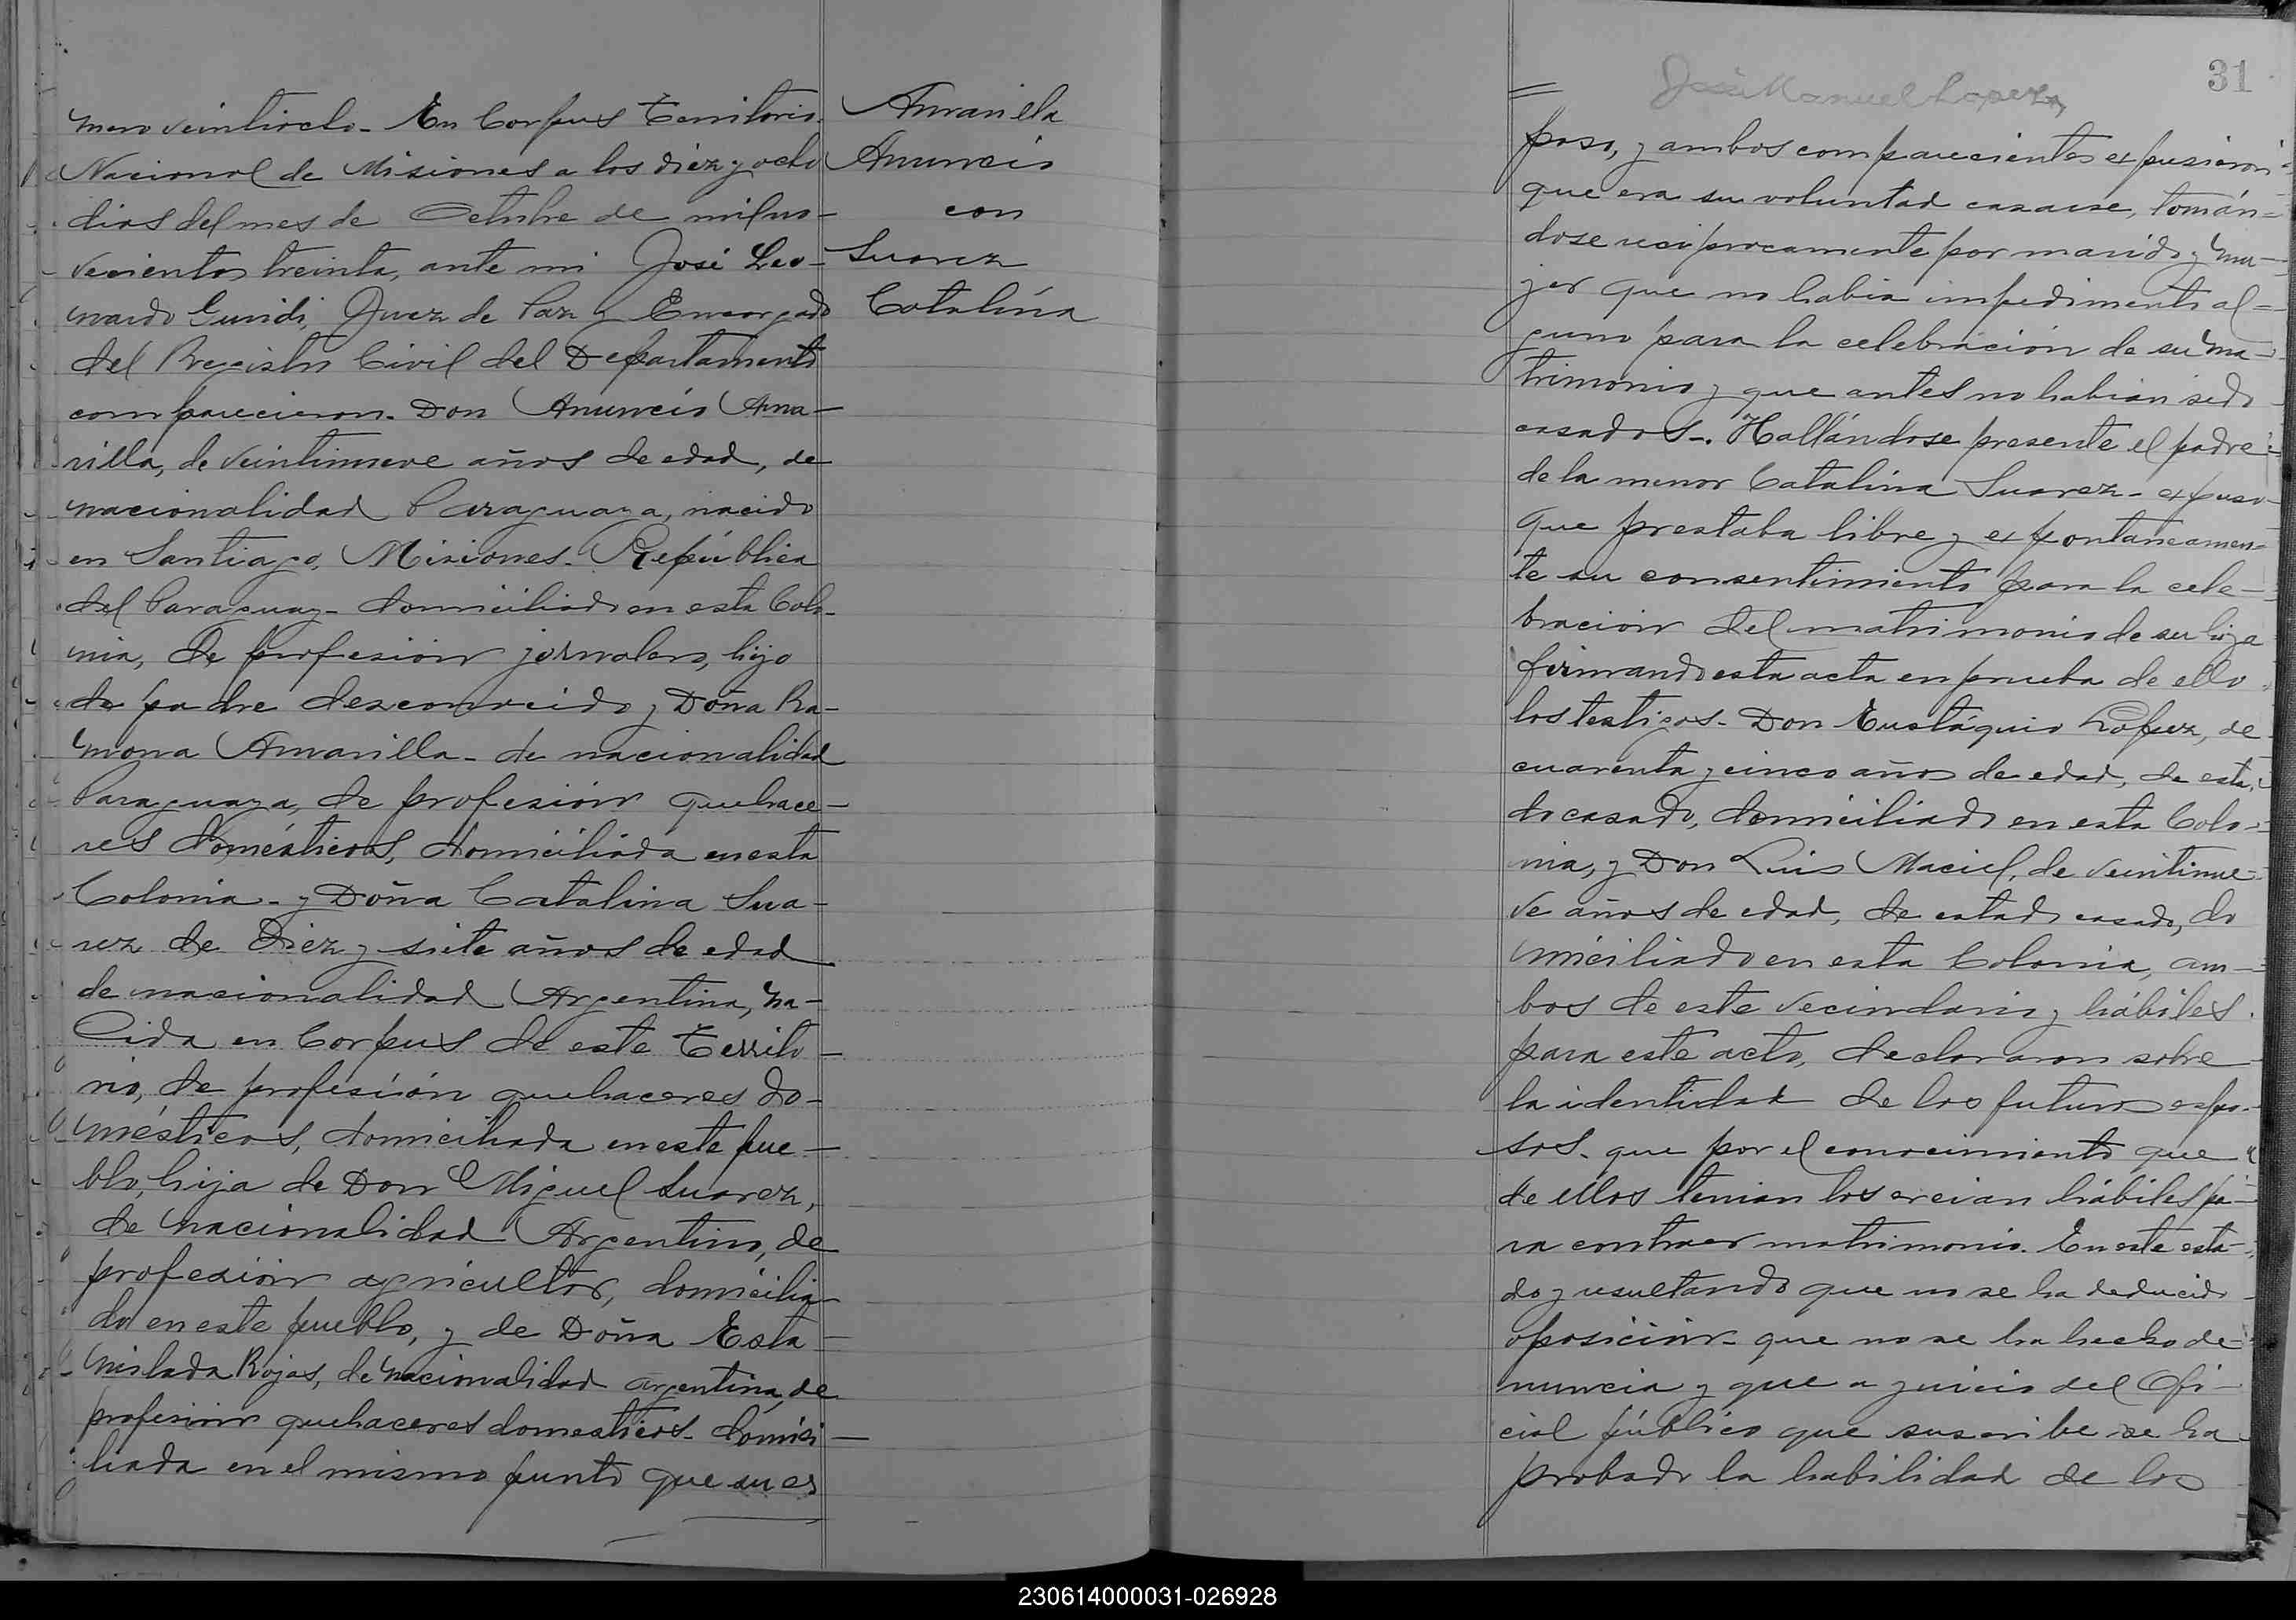 mero veintiocho - En Corpus Territorio
Nacional de Misiones a los diez y ocho
dias del mes de Octubre de mil no-
vecientos treinta, ante mi José Leo-
nardo Guridi, Juez de Paz y Encargado
del Registro Civil del Departamento
comparecieron. Don Anuncio Ama-
rilla, de veintinueve años de edad, de
nacionalidad Paraguaya, nacido
en Santiago, Misiones. República
del Paraguay - domiciliado en esta Colo-
nia, de profesión jornalero, hijo
de padre desconocido y Doña Ra-
mona Amarilla - de nacionalidad
Paraguaya, de profesión quehace-
res domésticos, domiciliada en esta
Colonia - y Doña Catalina Sua-
rez de Diez y siete años de edad
de nacionalidad Argentina, na-
cida en Corpus de este Territo-
rio, de profesión quehaceres do-
mésticos, domiciliada en este pue-
blo, hija de Don Miguel Suarez,
de nacionalidad Argentino, de
profesión agricultor, domicilia
do en este pueblo, y de Doña Esta-
nislada Rojas, de nacionalidad argentina, de
profesión quehaceres domesticos - domici-
liada en el mismo punto que su es
Amarilla
Anuncio
con
Suarez
Catalina
31
José Manuel Lopez
poso, y ambos comparecientes expusieron
que era su voluntad casarse, tomán-
dose reciprocamente por marido y mu-
jer que no habia impedimento al-
guno para la celebración de su ma-
trimonio y que antes no habian sido
casados-. Hallándose presente el padre
de la menor Catalina Suarez - expuso
que prestaba libre y expontaneamen-
te su consentimiento para la cele-
bración del matrimonio de su hija
firmando esta acta en prueba de ello
los testigos - Don Eustáquio Lopez, de
cuarenta y cinco años de edad, de esta-
do casado, domiciliado en esta Colo-
nia, y Don Luis Maciel, de veintinue-
ve años de edad, de estado casado, do
miciliado en esta Colonia, am-
bos de este vecindario y hábiles
para este acto, declararon sobre
la identidad de los futuros espo-
sos - que por el conocimiento que
de ellos tenian los creian hábiles pa-
ra contraer matrimonio. En este esta-
do y resultando que no se ha deducido
oposición - que no se ha hecho de-
nuncia y que a juicio del Ofi-
cial público que suscribe se ha
probado la habilidad de los
230614000031-026928